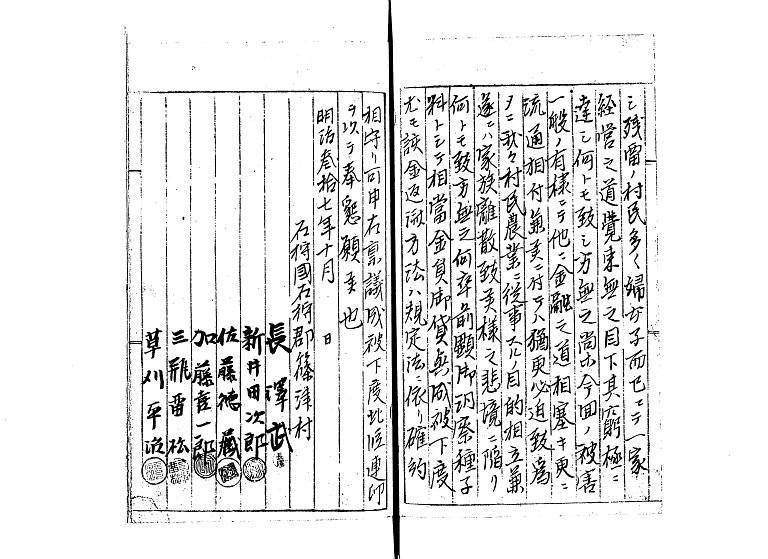 シ残留ノ村民多ク婦女子而已ニテ一家
経営之道覚束無之目下其窮極ニ
達シ何トモ致シ方無之尚亦今回ノ被害
一般ノ有様ニテ他ニ金融之道相塞キ更ニ
流通相付兼候ニ付テハ猶更必迫致為
メニ我々村民農業ニ従事スルノ目的相立兼
遂ニハ家族離散致候様之悲境ニ陥リ
何トモ致方無之何卒前顕御洞察種子
料トシテ相当金員御貸与成被下度
尤モ該金返濟方法ハ規定法ニ依リ確約
相守リ可申右稟議成被下度此段連印
ヲ以テ奉懇願候也
明治参拾七年十月 日
石狩國石狩郡篠津村
長澤武
新井田次郎
佐藤徳蔵
加藤吉一郎
三瓶留松
草刈平治